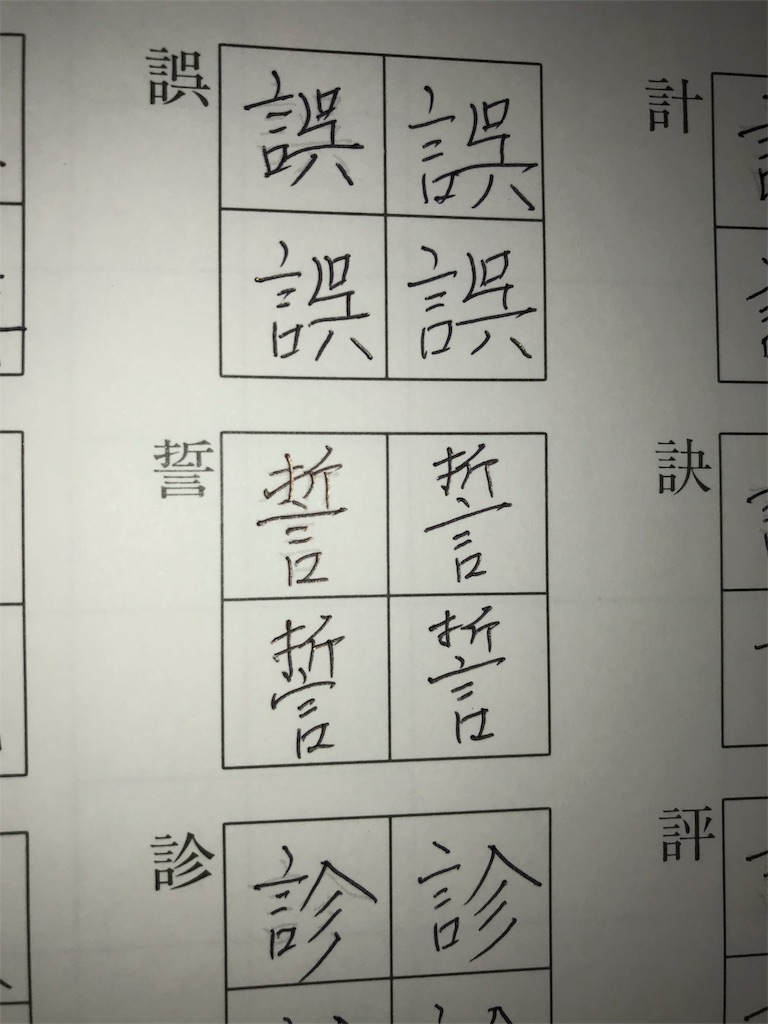 誤 誤 誤 計
誤 誤
誓 誓 誓 訣
誓 誓
診 診 診 評